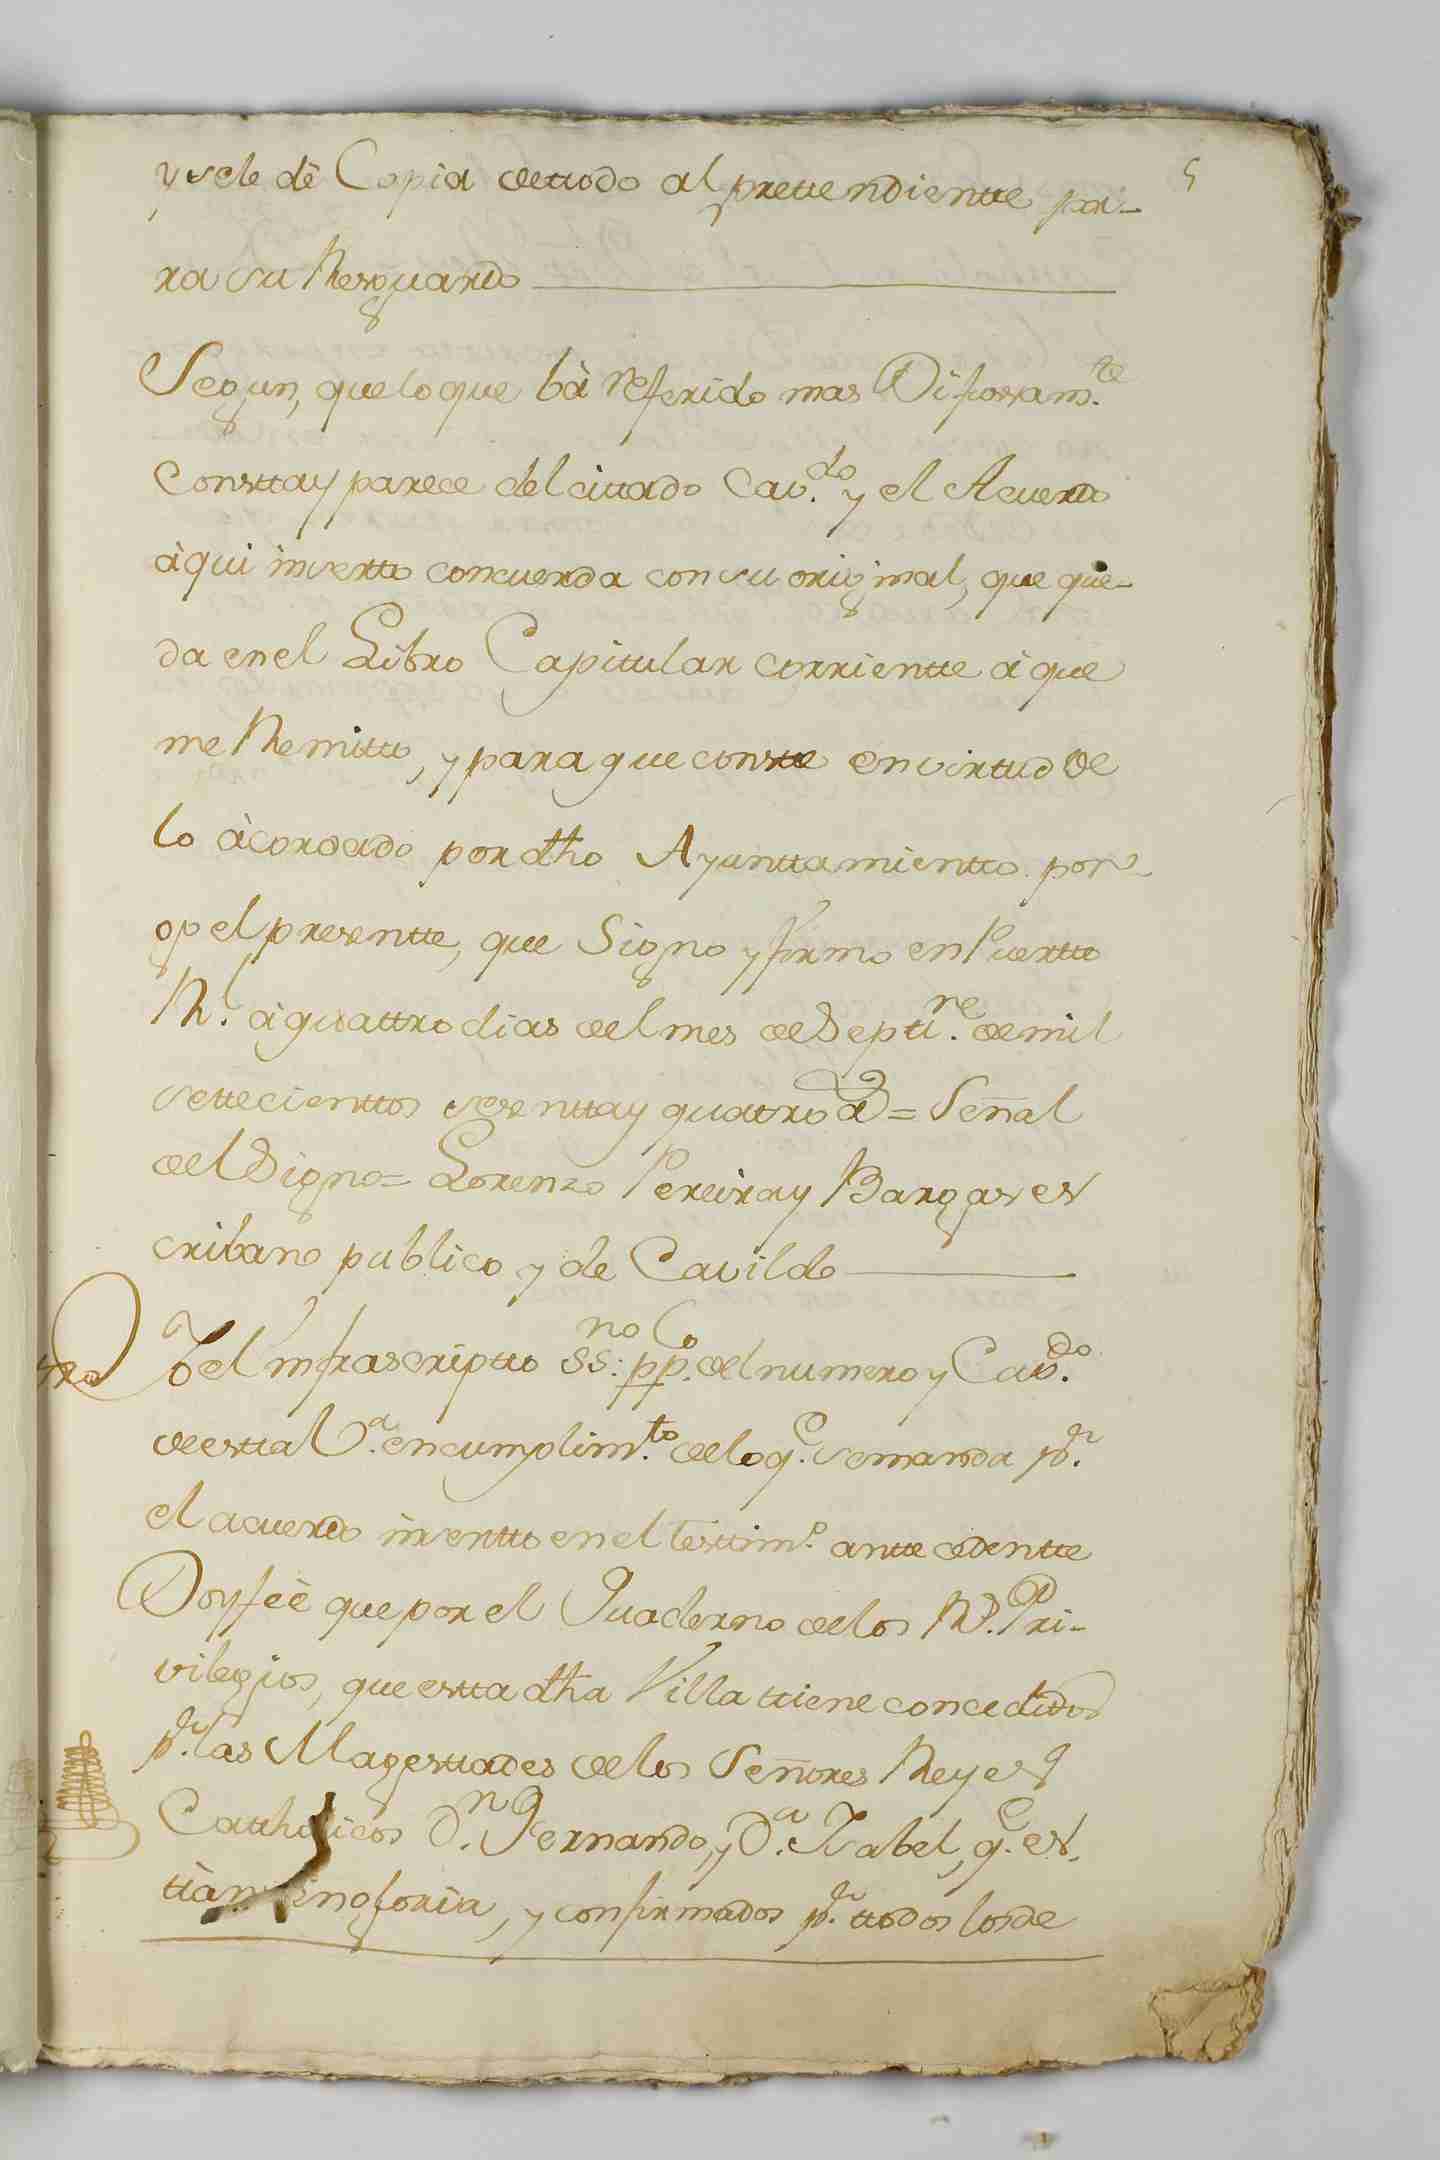 5
y se le dè Copia de ttodo al prettendientte pa-
ra su Resguardo
Segun, que lo que bà referido mas Difussam.te
constta y parece del cittado Cav.do y el Acuerdo
àqui inserto concuerda con su original, que que-
da en el Libro Capitular corrientte à que
me Remitto, y para que constte en virtud de
lo àcordado por dho Ayunttamientto pon-
go el presentte, que Signo y firmo en Puertto
R.l à quattro dias del mes de Septi.re de mil
settecienttos sesentta y quatro a = Señal
del Signo = Lorenzo Pereira y Bargas es
cribano publico y de Cavildo
Yo el Infrascriptto ss.no pp.co del numero y Cav.do
de estta V.a en cumplim.to de lo q.e se manda p.r
el acuerdo insertto en el testtim.o anttecedentte
Doy feè que por el Quaderno de los R.s Pri-
vilegios, que estta dha Villa ttiene concedidos
p.r las Magesttades de los Señores Reyes
Catthólicos D.n Fernando, y D.a Isabel, q.e es-
ttàn en gloria, y confirmados p.r ttodos los de